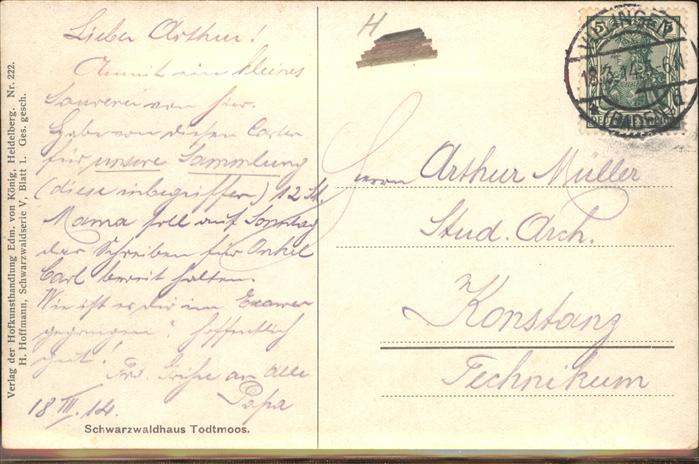 Lieber Arthur!
Anmit ein kleines
von hier.
Habe von diesen Carten
für unsere Sammlung
(diese inbegriffen) 12 St.
Mama soll auf Sonntag
das Schreiben für Onkel
Carl bereit halten.
Wie ist es dir im Examen
gegangen? hoffentlich
gut!
Frd. Grüße an alle
Papa
18 III. 14.
Schwarzwaldhaus Todtmoos.
Verlag der Hofkunsthandlung Edm. von König, Heidelberg. Nr. 222.
H. Hoffmann, Schwarzwaldserie V, Blatt 1. Ges. gesch.
H
5 5
(BADEN)
Herrn Arthur Müller
Stud. Arch.
Konstanz
Technikum